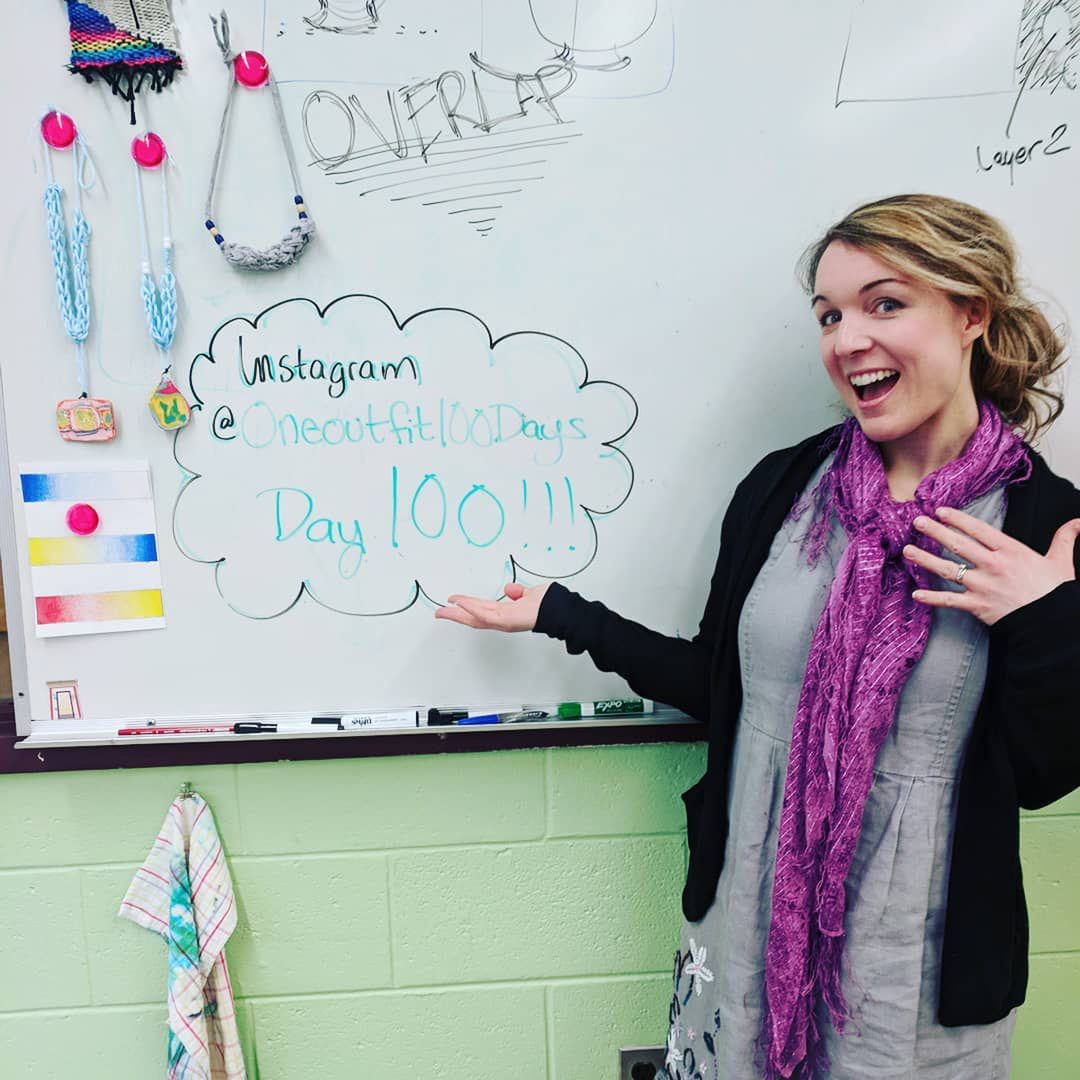 OVERLAP
Layer 2
Instagram
@Oneoutfit100Days
Day 100!!!
EXPO